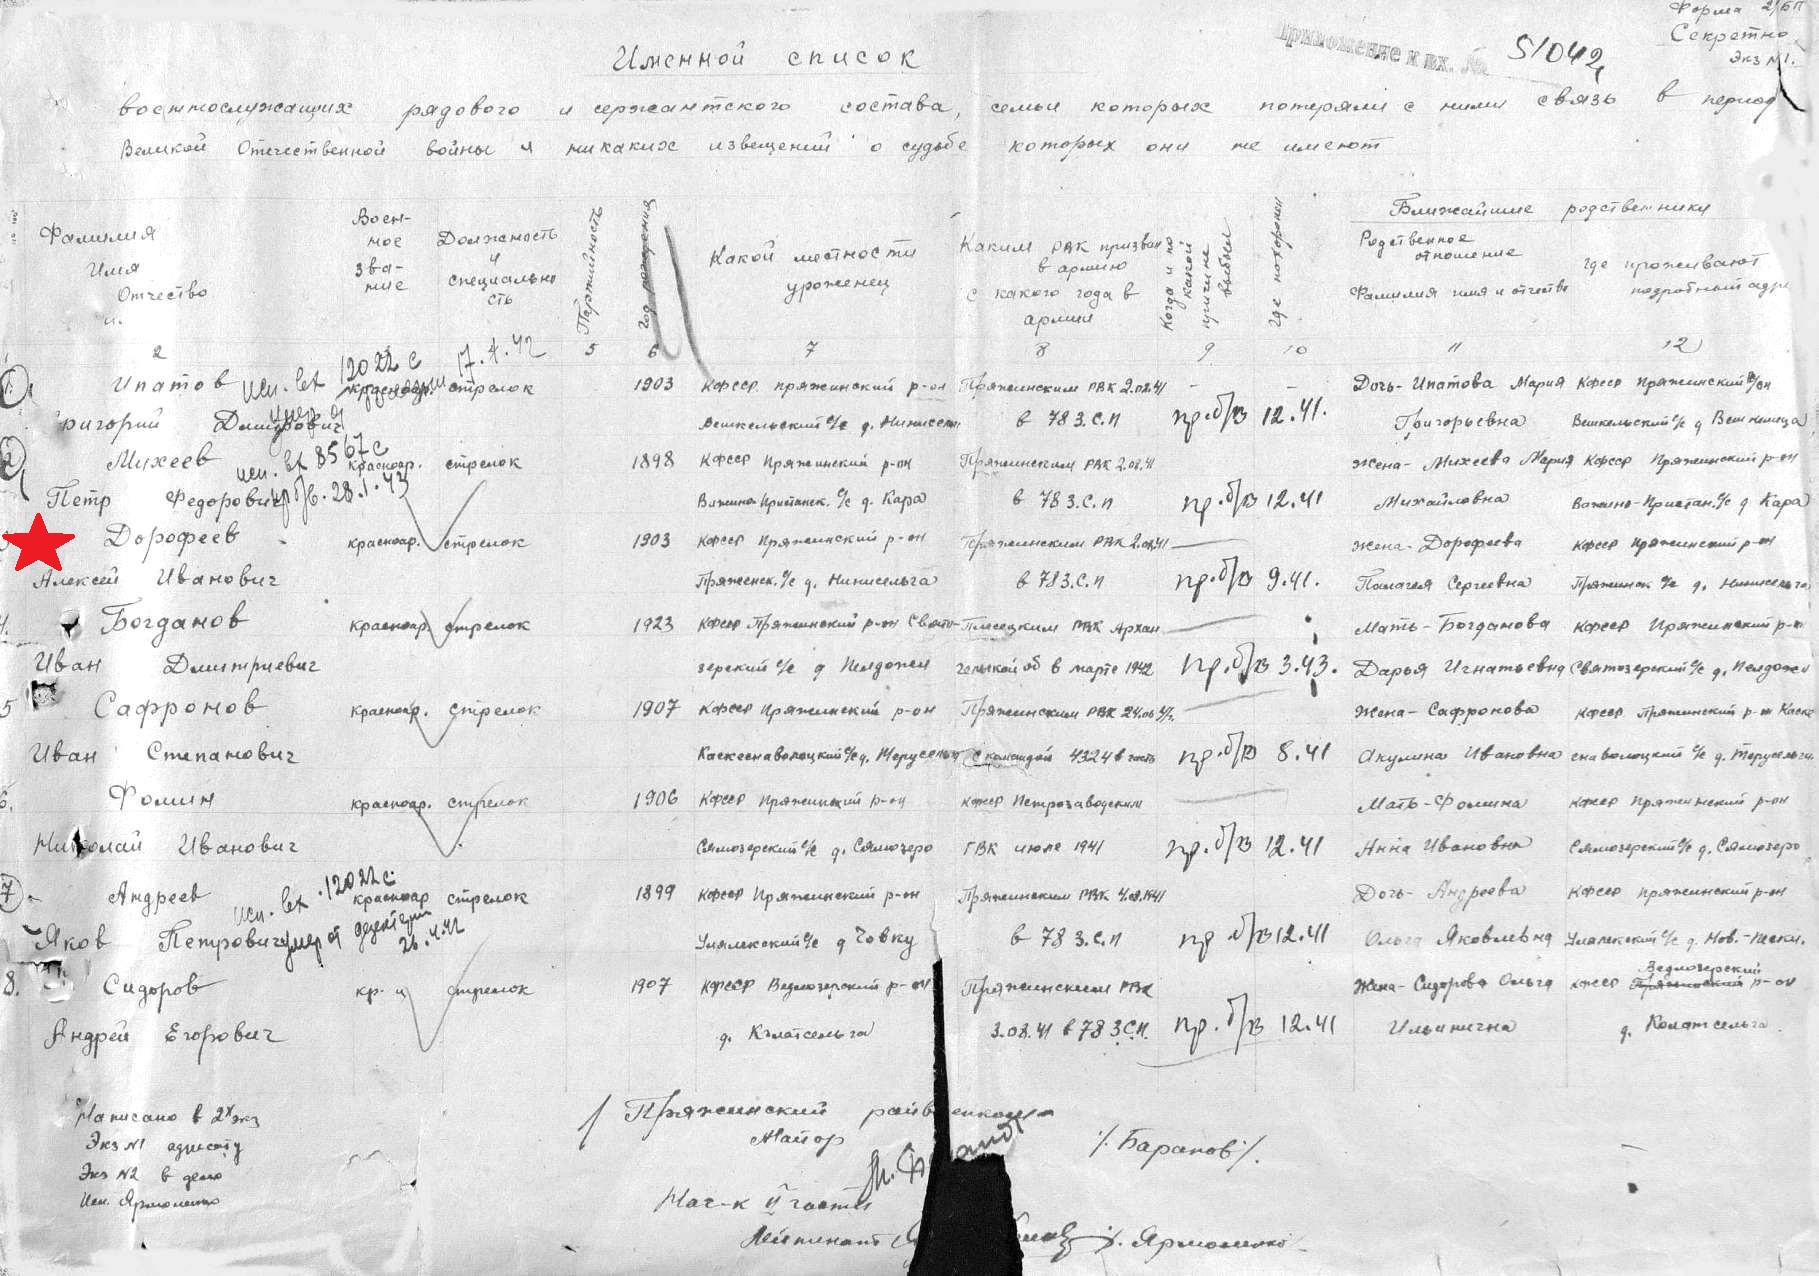 Форма 2/БП
Секретно
Экз №1.
Приложение к вх. № 51042
Именной список
военнослужащих рядового и сержантского состава, семьи которых потеряли с ними связь в период
Великой Отечественной войны и никаких извещений о судьбе которых они не имеют
Фамилия Имя Отчество
Воен-ное зва-ние
Должность и специально сть
Партийность
Год рождения
Какой местности уроженец
Каким РВК призван в армию с какого года в армии
Когда и по какой причине выбыл
Где похоронен
Ближайшие родственники
Родственное отношение Фамилия имя и отчество
Где проживают подробный адре
2 5 6 7 8 9 10 11 12
1. Ипатов исх. вх 12022 с 17.4.42 стрелок 1903 КФССР пряжинский р-он Пряжинским РВК 2.08.41 - - Дочь- Ипатова Мария КФССР Пряжинский р/он
Григорий Дмитрович Вешкельский с/с д. в 783.С.П пр.б/в 12.41. Григорьевна Вешкельский с/с д Вешкелица
2 Михеев вх 8567 с красноар. стрелок 1898 КФССР Пряжинский р-он Пряжинским РВК 2.08.41 Жена- Михеева Мария КФССР Пряжинский р-он
Петр Федорович пр б/в. 28.1.43 Важино Пристанск. с/с д. Кара в 783.С.П пр.б/в 12.41 Михайловна Важино-Пристан. с/с д Кара
Дорофеев красноар. стрелок 1903 КФССР Пряжинский р-он Пряжинским РВК 2.08.41 Жена- Дорофеева КФССР Пряжинский р-он
Алексей Иванович Пряженск. с/с д. Нинисельга в 783.С.П пр.б/в 9.41. Палагея Сергеевна Пряжинск с/с д. Нинисельга
4. Богданов красноар. стрелок 1923 КФССР Пряжинский р-он Свято- Плесецким РВК Архан Мать- Богданова КФССР Пряжинский р-он
Иван Дмитриевич зерский с/с д Пелдожи гельской об в марте 1942 пр.б/в 3.43. Дарья Игнатьевна Святозерский с/с д. Пелдожи
5 Сафронов красноар. стрелок 1907 КФССР Пряжинский р-он Пряжинским РВК Жена- Сафронова КФССР Пряжинский р-он Каске
Иван Степанович Каскеснаволоцкий с/с д. с командой 4324 в пр.б/в 8.41 Акулина Ивановна снаволоцкий с/с д.
6. Фомин красноар. стрелок 1906 КФССР Пряжинский р-он КФССР Петрозаводским Мать- Фомина КФССР Пряжинский р-он
Николай Иванович Сямозерский с/с д. Сямозеро ГВК июле 1941 пр.б/в 12.41 Анна Ивановна Сямозерский с/с д. Сямозеро
7 Андреев исх. вх. 12022 с. красноар стрелок 1899 КФССР Пряжинский р-он Пряжинским РВК 4.08.1941 Дочь- Андреева КФССР Пряжинский р-он
Яков Петрович умер от дезентерии 26.4.42 Улялекский с/с д Човку в 783.С.П пр б/в 12.41 Ольга Яковлевна Улялекский с/с д. Нов.-
8. Сидоров кр. ц стрелок 1907 КФССР Ведлозерский р-он Пряжинским РВК Жена- Сидорова Ольга КФССР Ведлозерский р-он
Андрей Егорович д. Колатсельга 3.08.41 в 783С.П. пр.б/в 12.41 Ильинична д. Колатсельга
Написано в 2х экз
Экз №1 адресату
Экз №2 в дело
Исп. Ярмоленко
Пряжинский райвоенком
Майор /Баранов/.
Нач-к II части
Лейтенант /. Ярмоленко